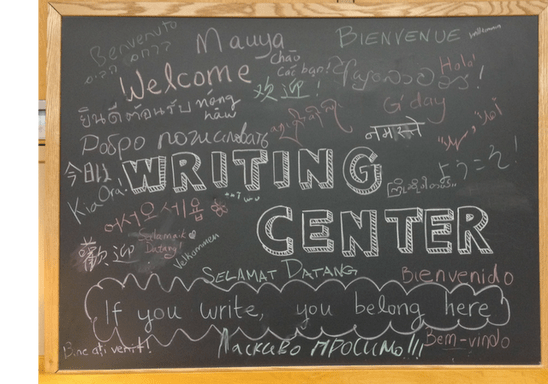 Benvenuto
Mauya
BIENVENUE
chào
các bạn!
Hola!
Welcome
欢迎!
G'day
ยินดีต้อนรับ
nóng
hâu
नमस्ते
Добро пожаловать
今日は
WRITING
ようこそ!
Kia Ora
어서오세요
CENTER
歡迎
Datang!
Velkommen
SELAMAT DATANG
Bienvenido
If you write, you belong here
Bine ati venit!
Ласкаво просимо!!!
Bem-vindo